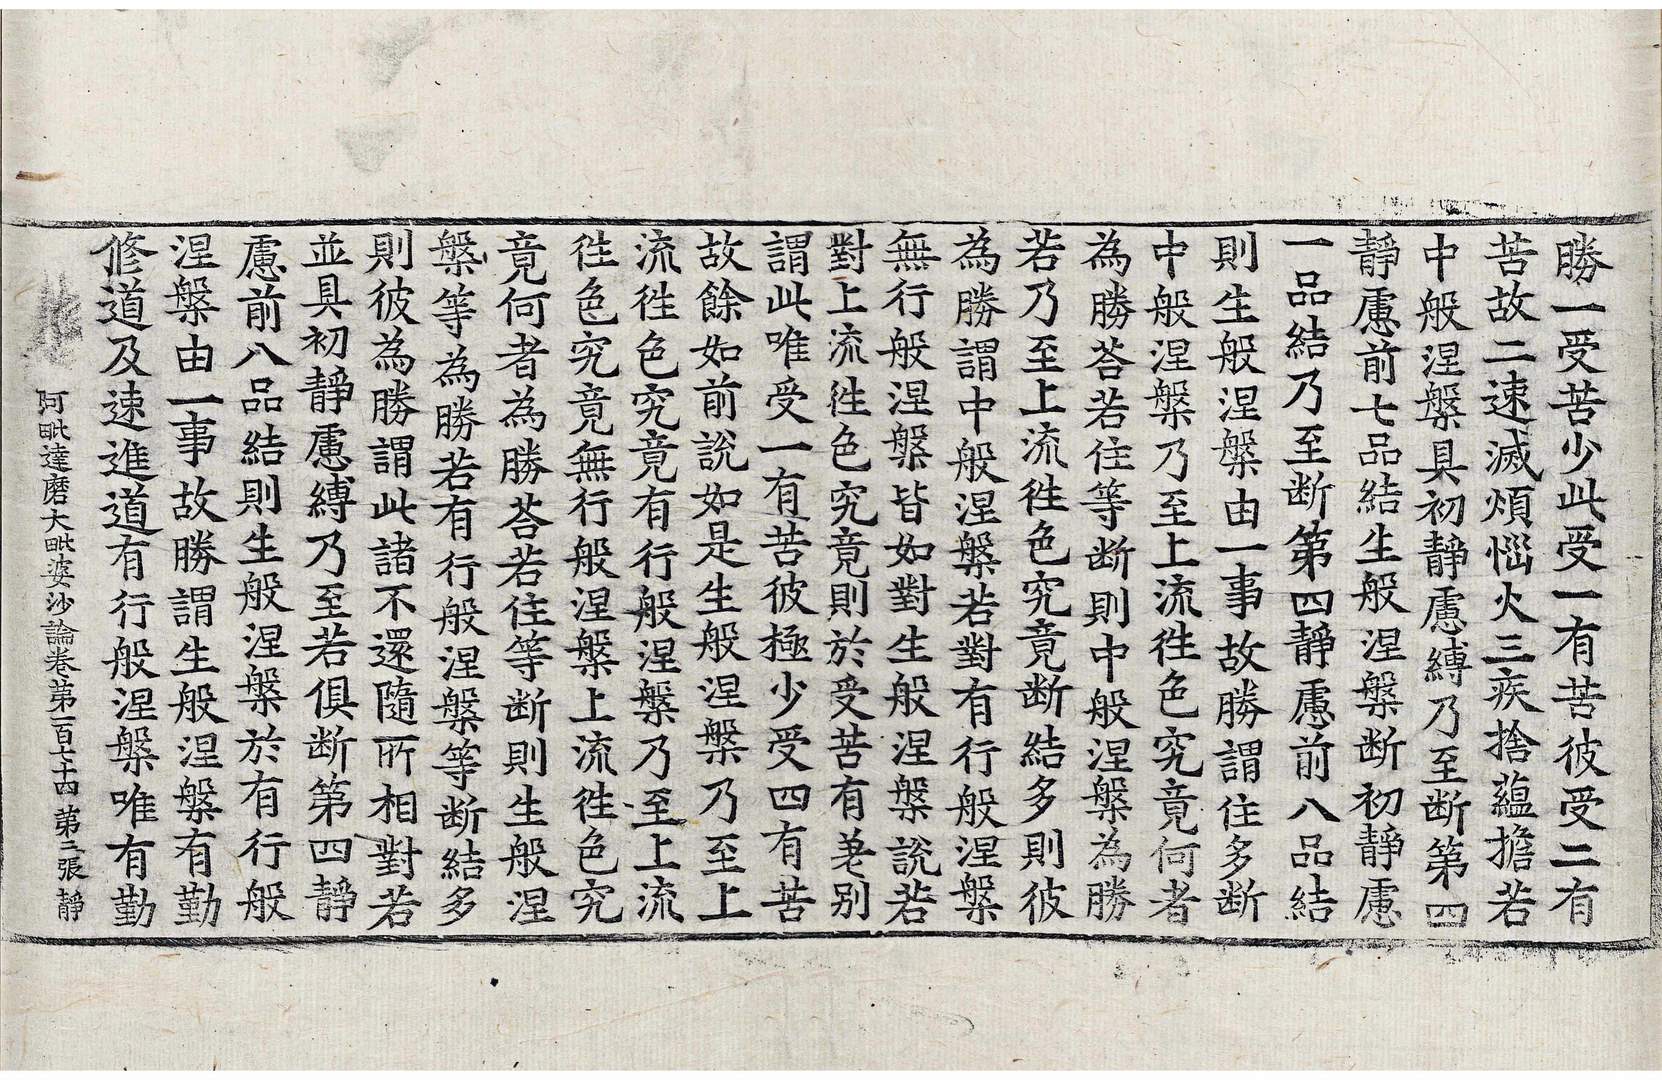 勝一受苦少此受一有苦彼受二有
苦故二速滅煩惱火三疾捨蘊擔若
中般涅槃具初靜慮縛乃至断第四
靜慮前七品結生般涅槃断初靜慮
一品結乃至断第四靜慮前八品結
則生般涅槃由一事故勝謂住多断
中般涅槃乃至上流徃色究竟何者
為勝荅若住等断則中般涅槃為勝
若乃至上流徃色究竟断結多則彼
為勝謂中般涅槃若對有行般涅槃
無行般涅槃皆如對生般涅槃說若
對上流徃色究竟則於受苦有差别
謂此唯受一有苦彼極少受四有苦
故餘如前說如是生般涅槃乃至上
流徃色究竟有行般涅槃乃至上流
徃色究竟無行般涅槃上流徃色究
竟何者為勝荅若住等断則生般涅
槃等為勝若有行般涅槃等断結多
則彼為勝謂此諸不還隨所相對若
並具初靜慮縛乃至若俱断第四靜
慮前八品結則生般涅槃於有行般
涅槃由一事故勝謂生般涅槃有勤
修道及速進道有行般涅槃唯有勤
阿毗達磨大毗婆沙論卷第一百七十四 第二張 靜